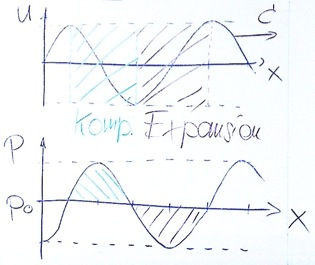 u
c
x
Komp. Expansion
p
p₀
x